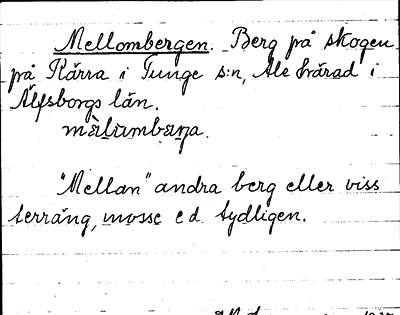 Mellombergen. Berg på skogen
på Kärra i Tunge s:n, Ale härad i
Älfsborgs län.

"Mellan" andra berg eller viss
terräng, mosse e d tydligen.